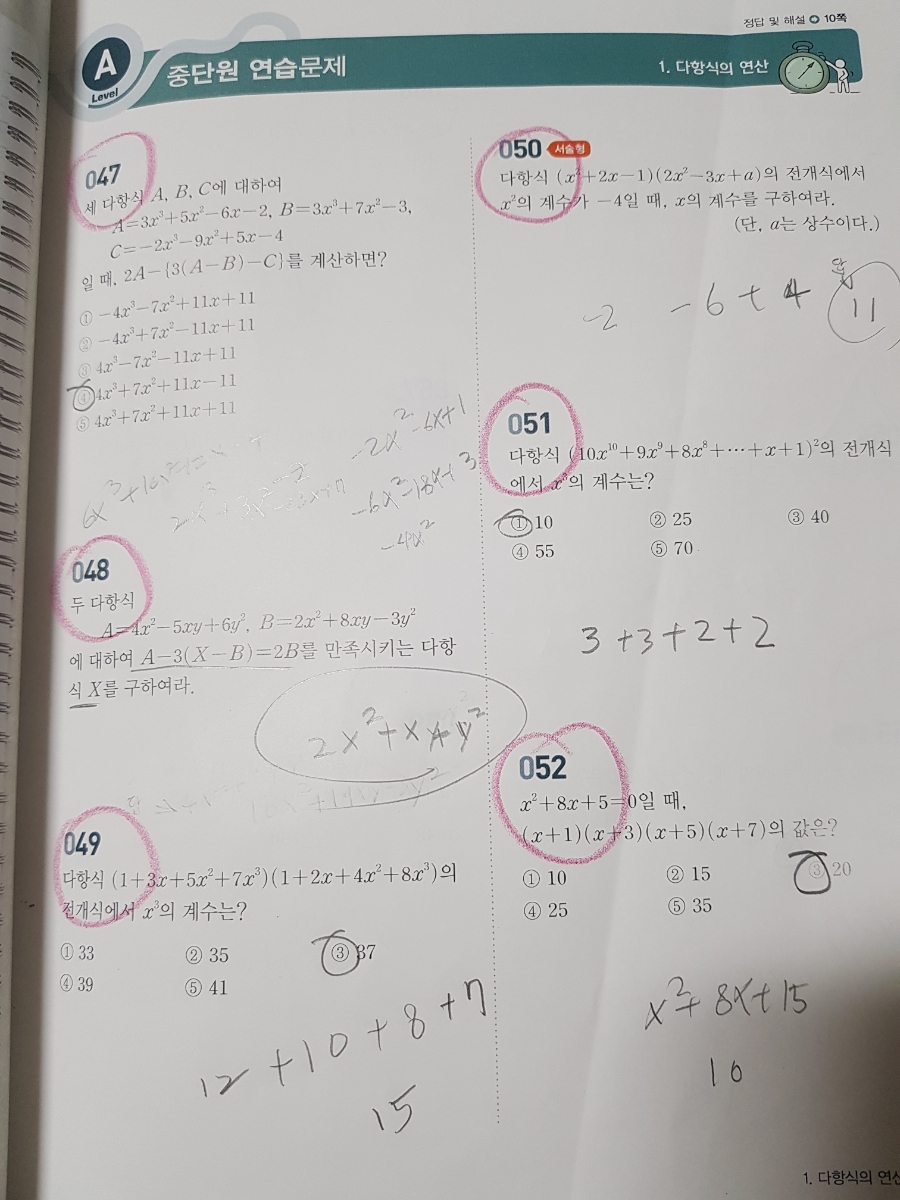 정답 및 해설 ➲ 10쪽
A
Level
중단원 연습문제
1. 다항식의 연산
047
세 다항식 A, B, C에 대하여
A=3x³+5x²-6x-2, B=3x³+7x²-3,
C=-2x³-9x²+5x-4
일 때, 2A-{3(A-B)-C}를 계산하면?
① -4x³-7x²+11x+11
② -4x³+7x²-11x+11
③ 4x³-7x²-11x+11
④ 4x³+7x²+11x-11
⑤ 4x³+7x²+11x+11
-2x²-6x+1
-6x²-18x+3
-4x²
048
두 다항식
A=4x²-5xy+6y², B=2x²+8xy-3y²
에 대하여 A-3(X-B)=2B를 만족시키는 다항
식 X를 구하여라.
2x²+xy+y²
049
다항식 (1+3x+5x²+7x³)(1+2x+4x²+8x³)의
전개식에서 x³의 계수는?
① 33 ② 35 ③ 37
④ 39 ⑤ 41
12+10+8+7
15
050 서술형
다항식 (x²+2x-1)(2x²-3x+a)의 전개식에서
x²의 계수가 -4일 때, x의 계수를 구하여라.
(단, a는 상수이다.)
-2 -6+4 답 11
051
다항식 (10x¹⁰+9x⁹+8x⁸+⋯+x+1)²의 전개식
에서 x³의 계수는?
① 10 ② 25 ③ 40
④ 55 ⑤ 70
3+3+2+2
052
x²+8x+5=0일 때,
(x+1)(x+3)(x+5)(x+7)의 값은?
① 10 ② 15 ③ 20
④ 25 ⑤ 35
x²+8x+15
10
1. 다항식의 연산